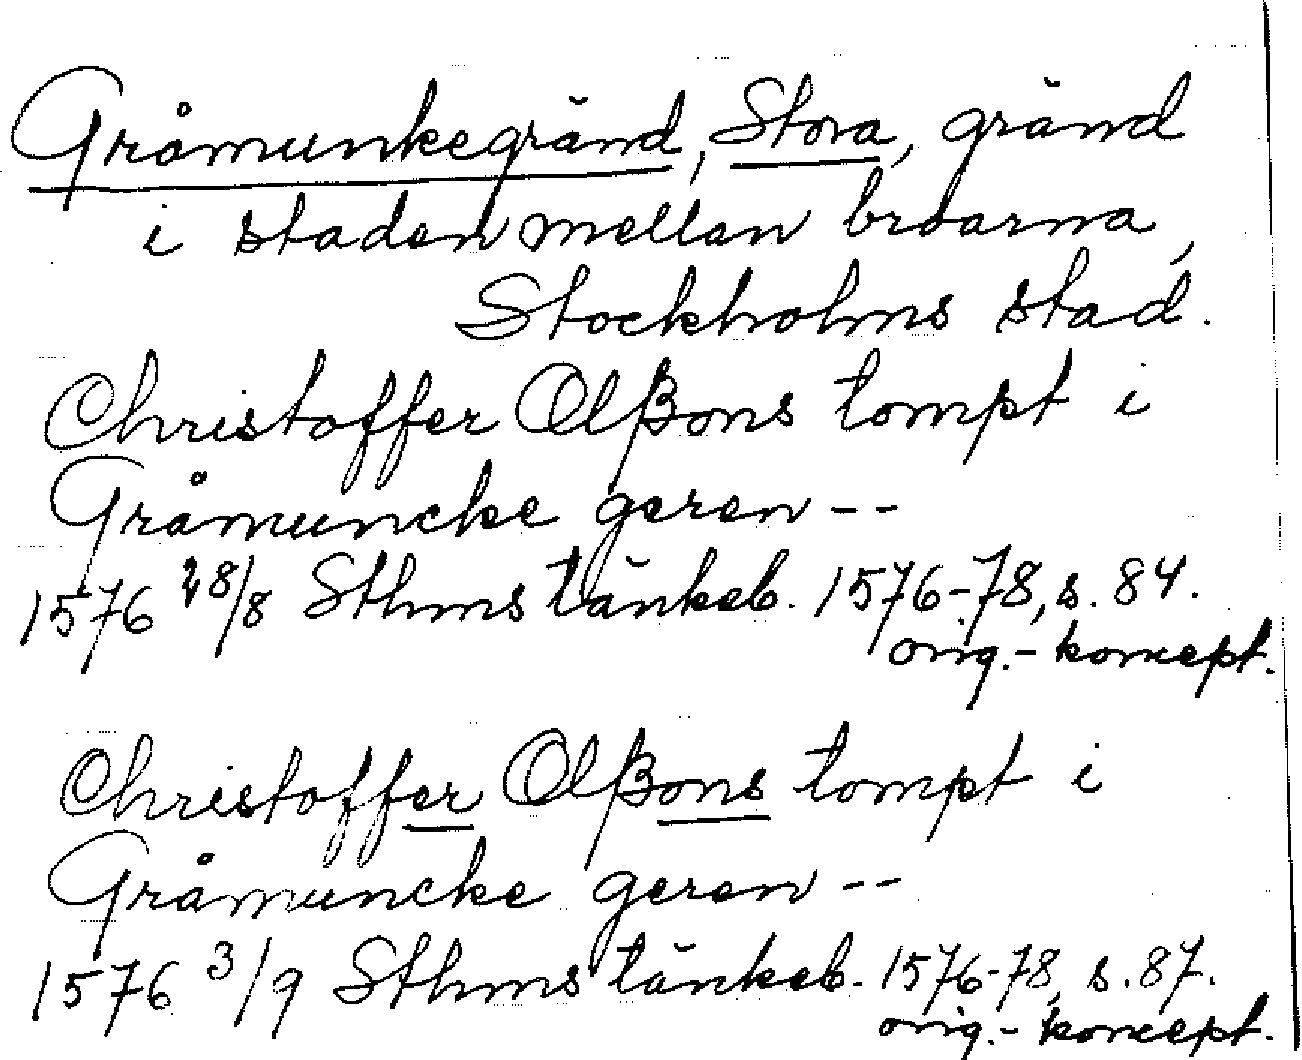 Gråmunkegränd, Stora, gränd
i staden mellan broarna,
Stockholms stad.
Christoffer Olßons tompt i
Gråmuncke geren --
1576 28/8 Sthms tänkeb. 1576-78, s. 84.
orig.- koncept.
Christoffer Olßons tompt i
Gråmuncke geren --
1576 3/9 Sthms tänkeb. 1576-78, s. 87.
orig.- koncept.